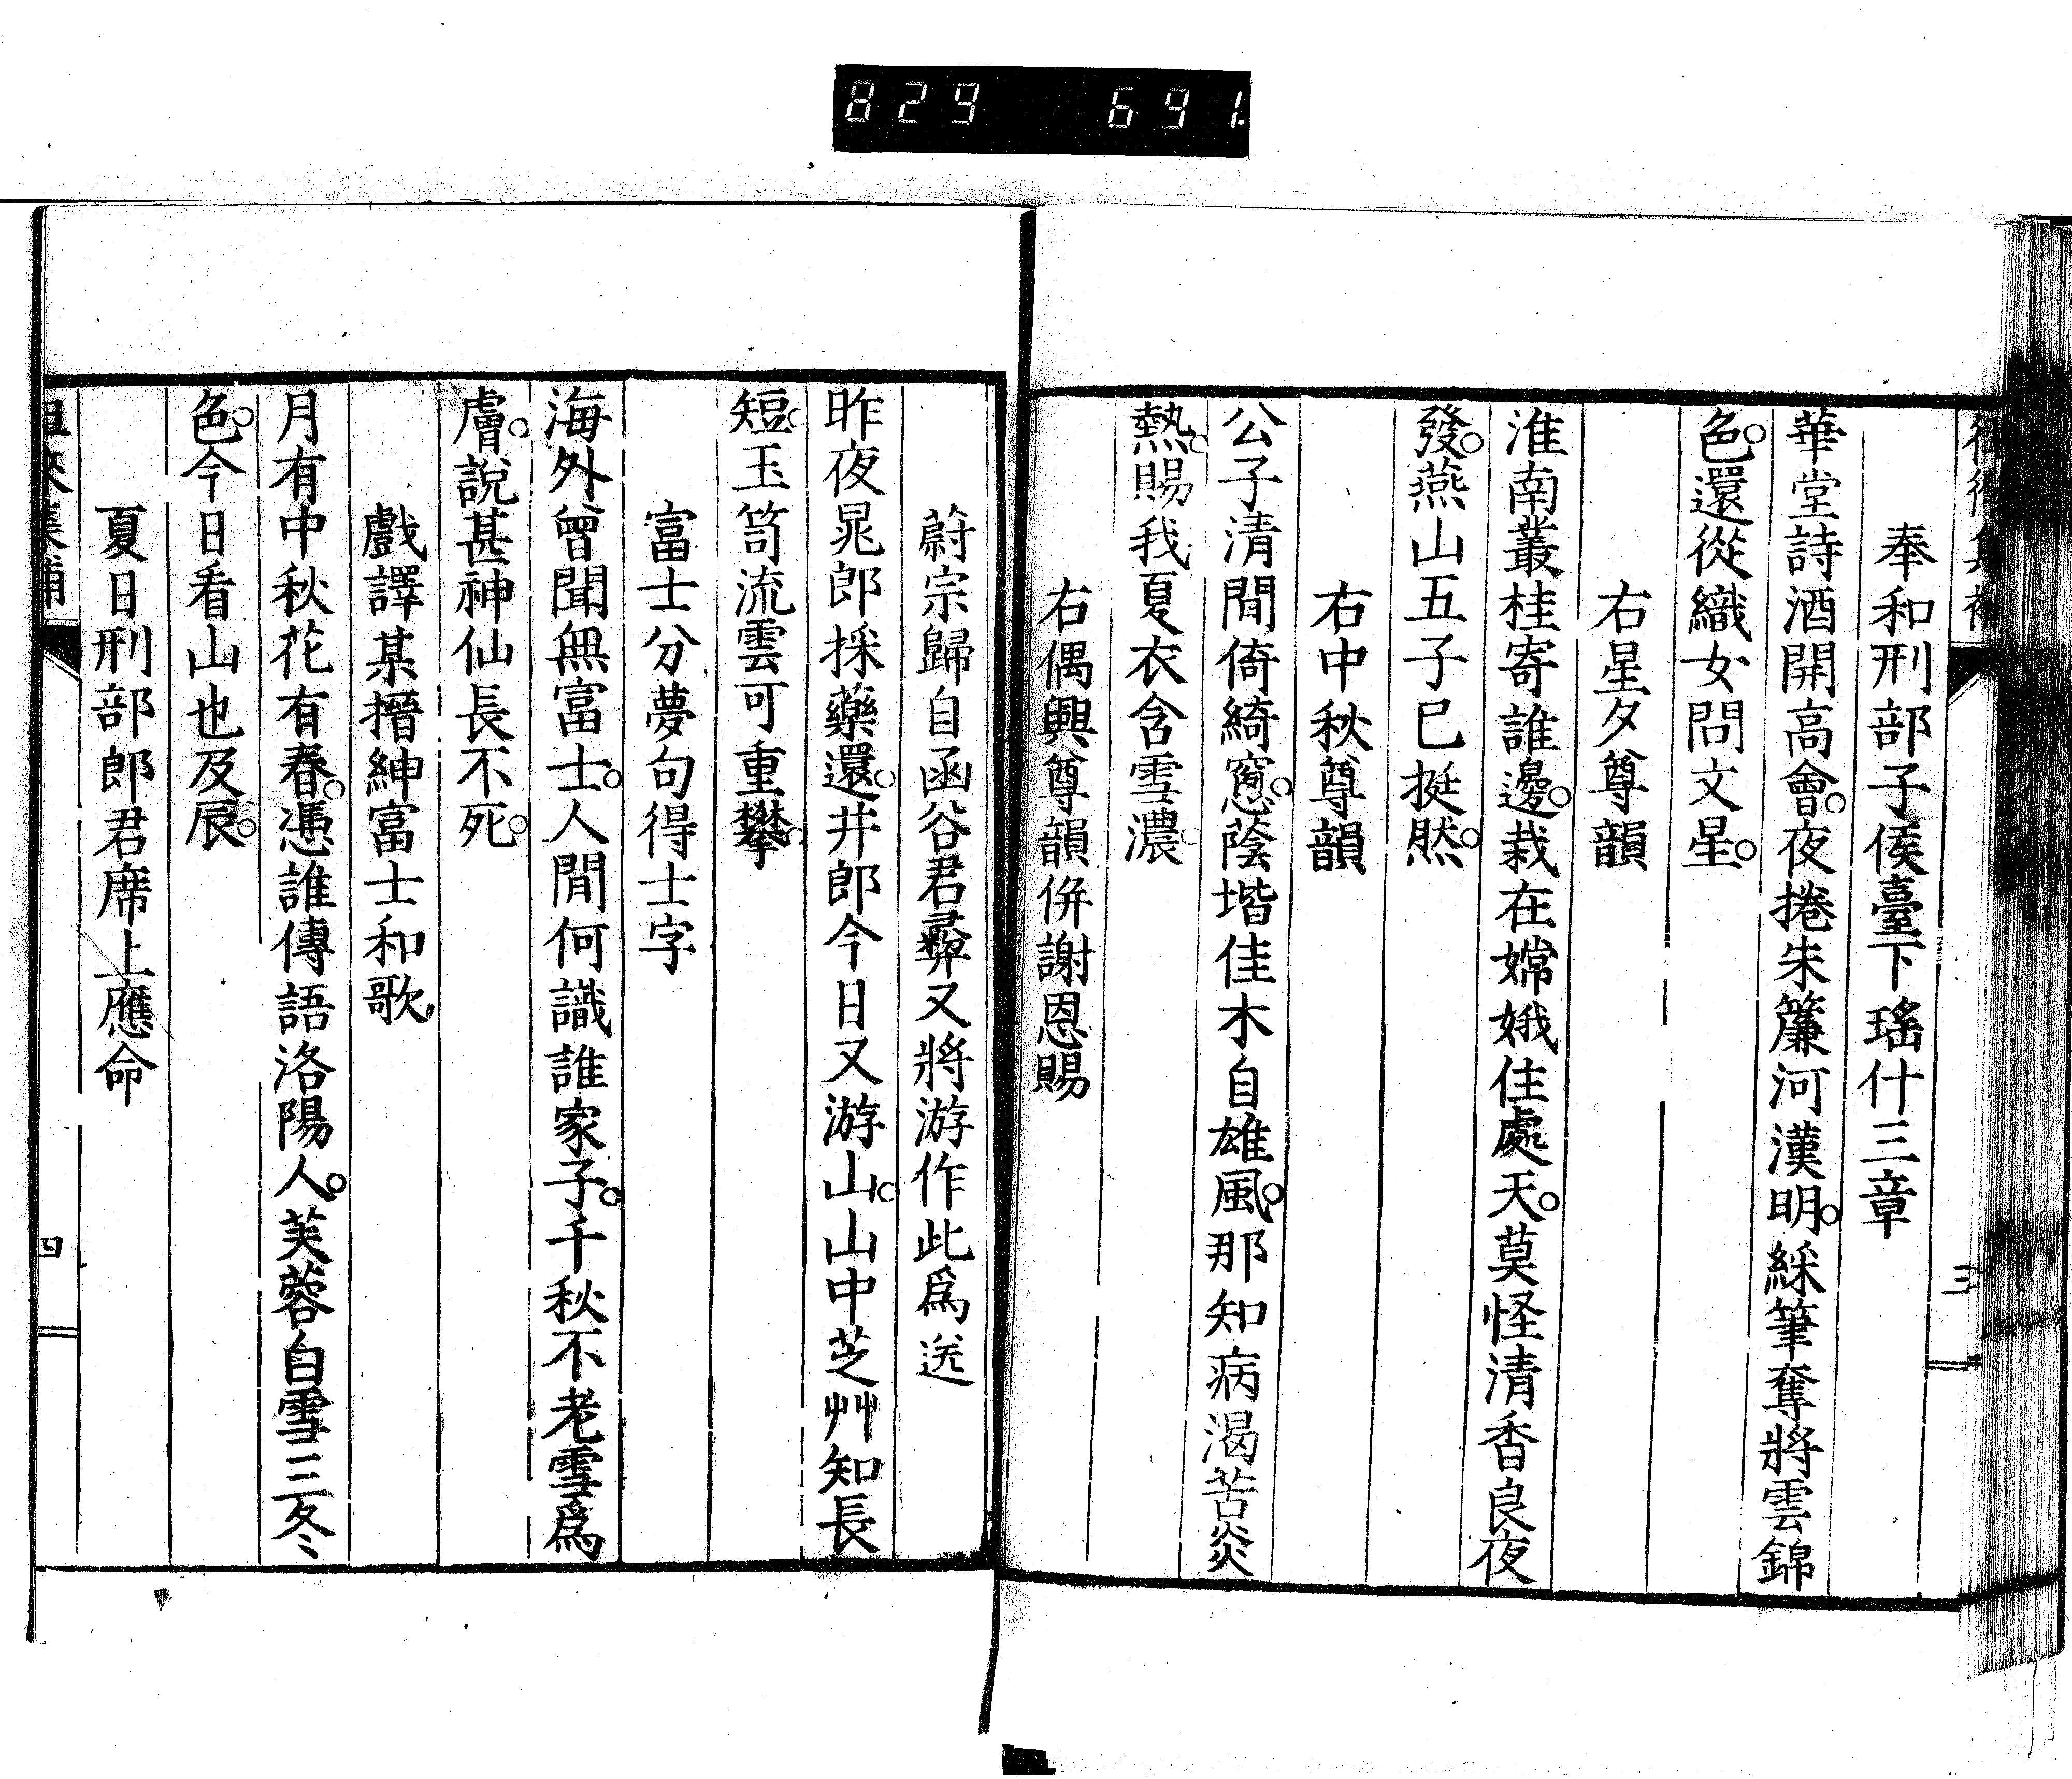 829 691
奉和刑部子侯臺下瑤什三章
華堂詩酒開高會。夜捲朱簾河漢明。綵筆奪將雲錦
色。還從織女問文星。
右星夕尊韻
淮南叢桂寄誰邊。栽在嫦娥住處天。莫怪清香良夜
發。燕山五子已挺然。
右中秋尊韻
公子清閒倚綺窻。蔭堦佳木自雄風。那知病渴苦炎
熱。賜我夏衣含雪濃。
右偶興尊韻併謝恩賜
三
蔚宗歸自函谷君彜又將游作此爲送
昨夜晁郎採藥還。井郎今日又游山。山中芝艸知長
短。玉笥流雲可重攀。
富士分夢句得士字
海外曾聞無富士。人間何識誰家子。千秋不老雪爲
膚。說甚神仙長不死。
戲譯某搢紳富士和歌
月有中秋花有春。憑誰傳語洛陽人。芙蓉白雪三冬
色。今日看山也及辰。
夏日刑部郎君席上應命
四